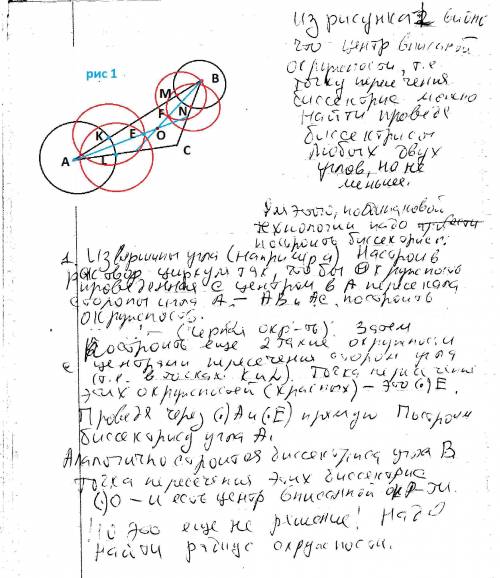 рис 1
B
M
F
N
K
E
O
A
L
C
Из рисунка 1 видно
что центр вписаной
окружности, т.е
точку пересечения
биссектрис можно
найти проведя
биссектрисы
любых двух
углов, но не
меньше.
Для этого, по одинаковой
технологии надо
построить биссектрис.
1. Из вершины угла (например А) Настроив
раствор циркуля так, чтобы окружность
проведенная с центром в А пересекала
стороны угла А – АВ и АС. построить
окружность.
(черная окр-ть). Затем
построить еще 2 такие окружности
с центрами пересечения сторон угла
(т.е. в точках К и L). Точка пересечения
этих окружностей (красных) – это (·)Е.
Проведя через (·)А и (·)Е) прямую Построим
биссектрису угла А.
Аналогично строится биссектриса угла В
Точка пересечения этих биссектрис
(·)О – и есть центр вписанной окр-ти.
Но это еще не решение! Надо
найти радиус окружности.